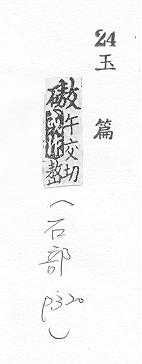 24
玉篇
磝午交切
(石部
p320)